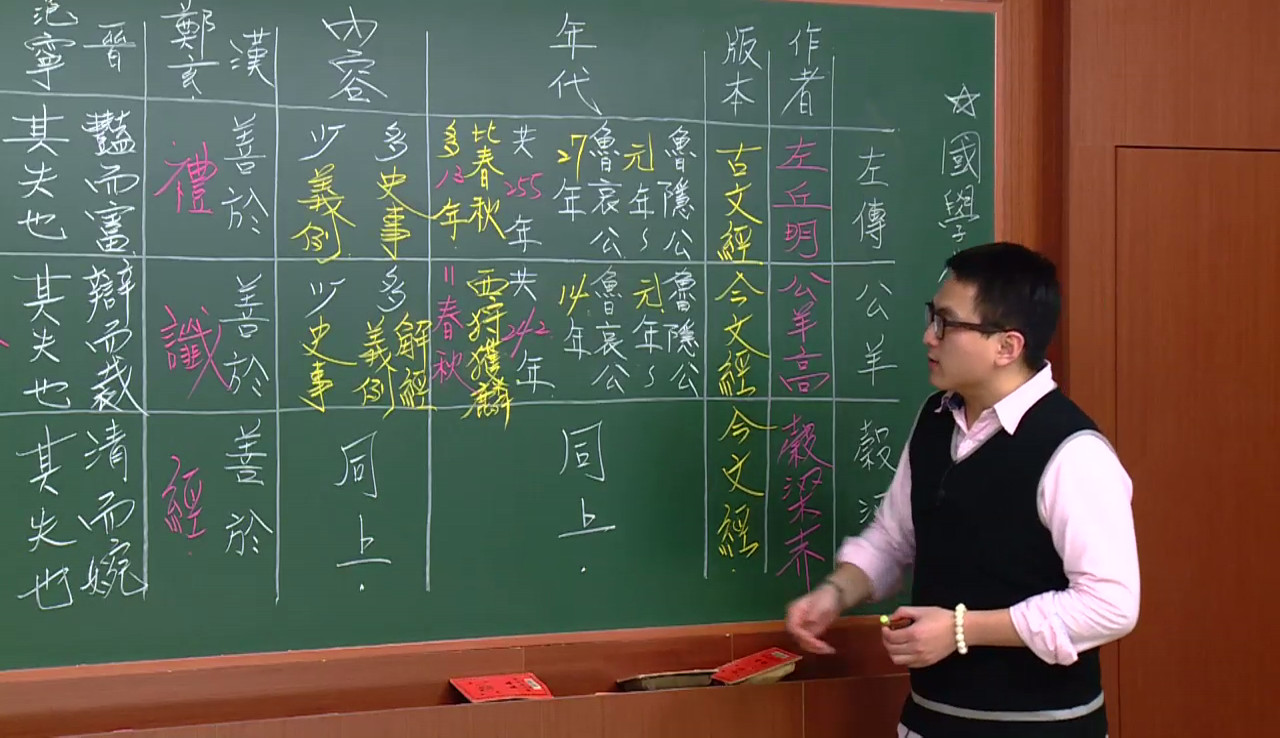 ☆國學
左傳
公羊
穀
作者
左丘明
公羊高
穀梁赤
版本
古文經
今文經
今文經
年代
魯隱公
元年~
魯哀公
27年
共255年
比春秋
多13年.
魯隱公
元年~
魯哀公
14年
共242年
西狩獲麟
=春秋
同上.
內容
多史事
少義例
多解經
義例
少史事
同上.
漢
鄭玄.
善於
禮
善於
讖
善於
經.
晉
范寧
豔而富
其失也
辯而裁
其失也
清而婉
其失也